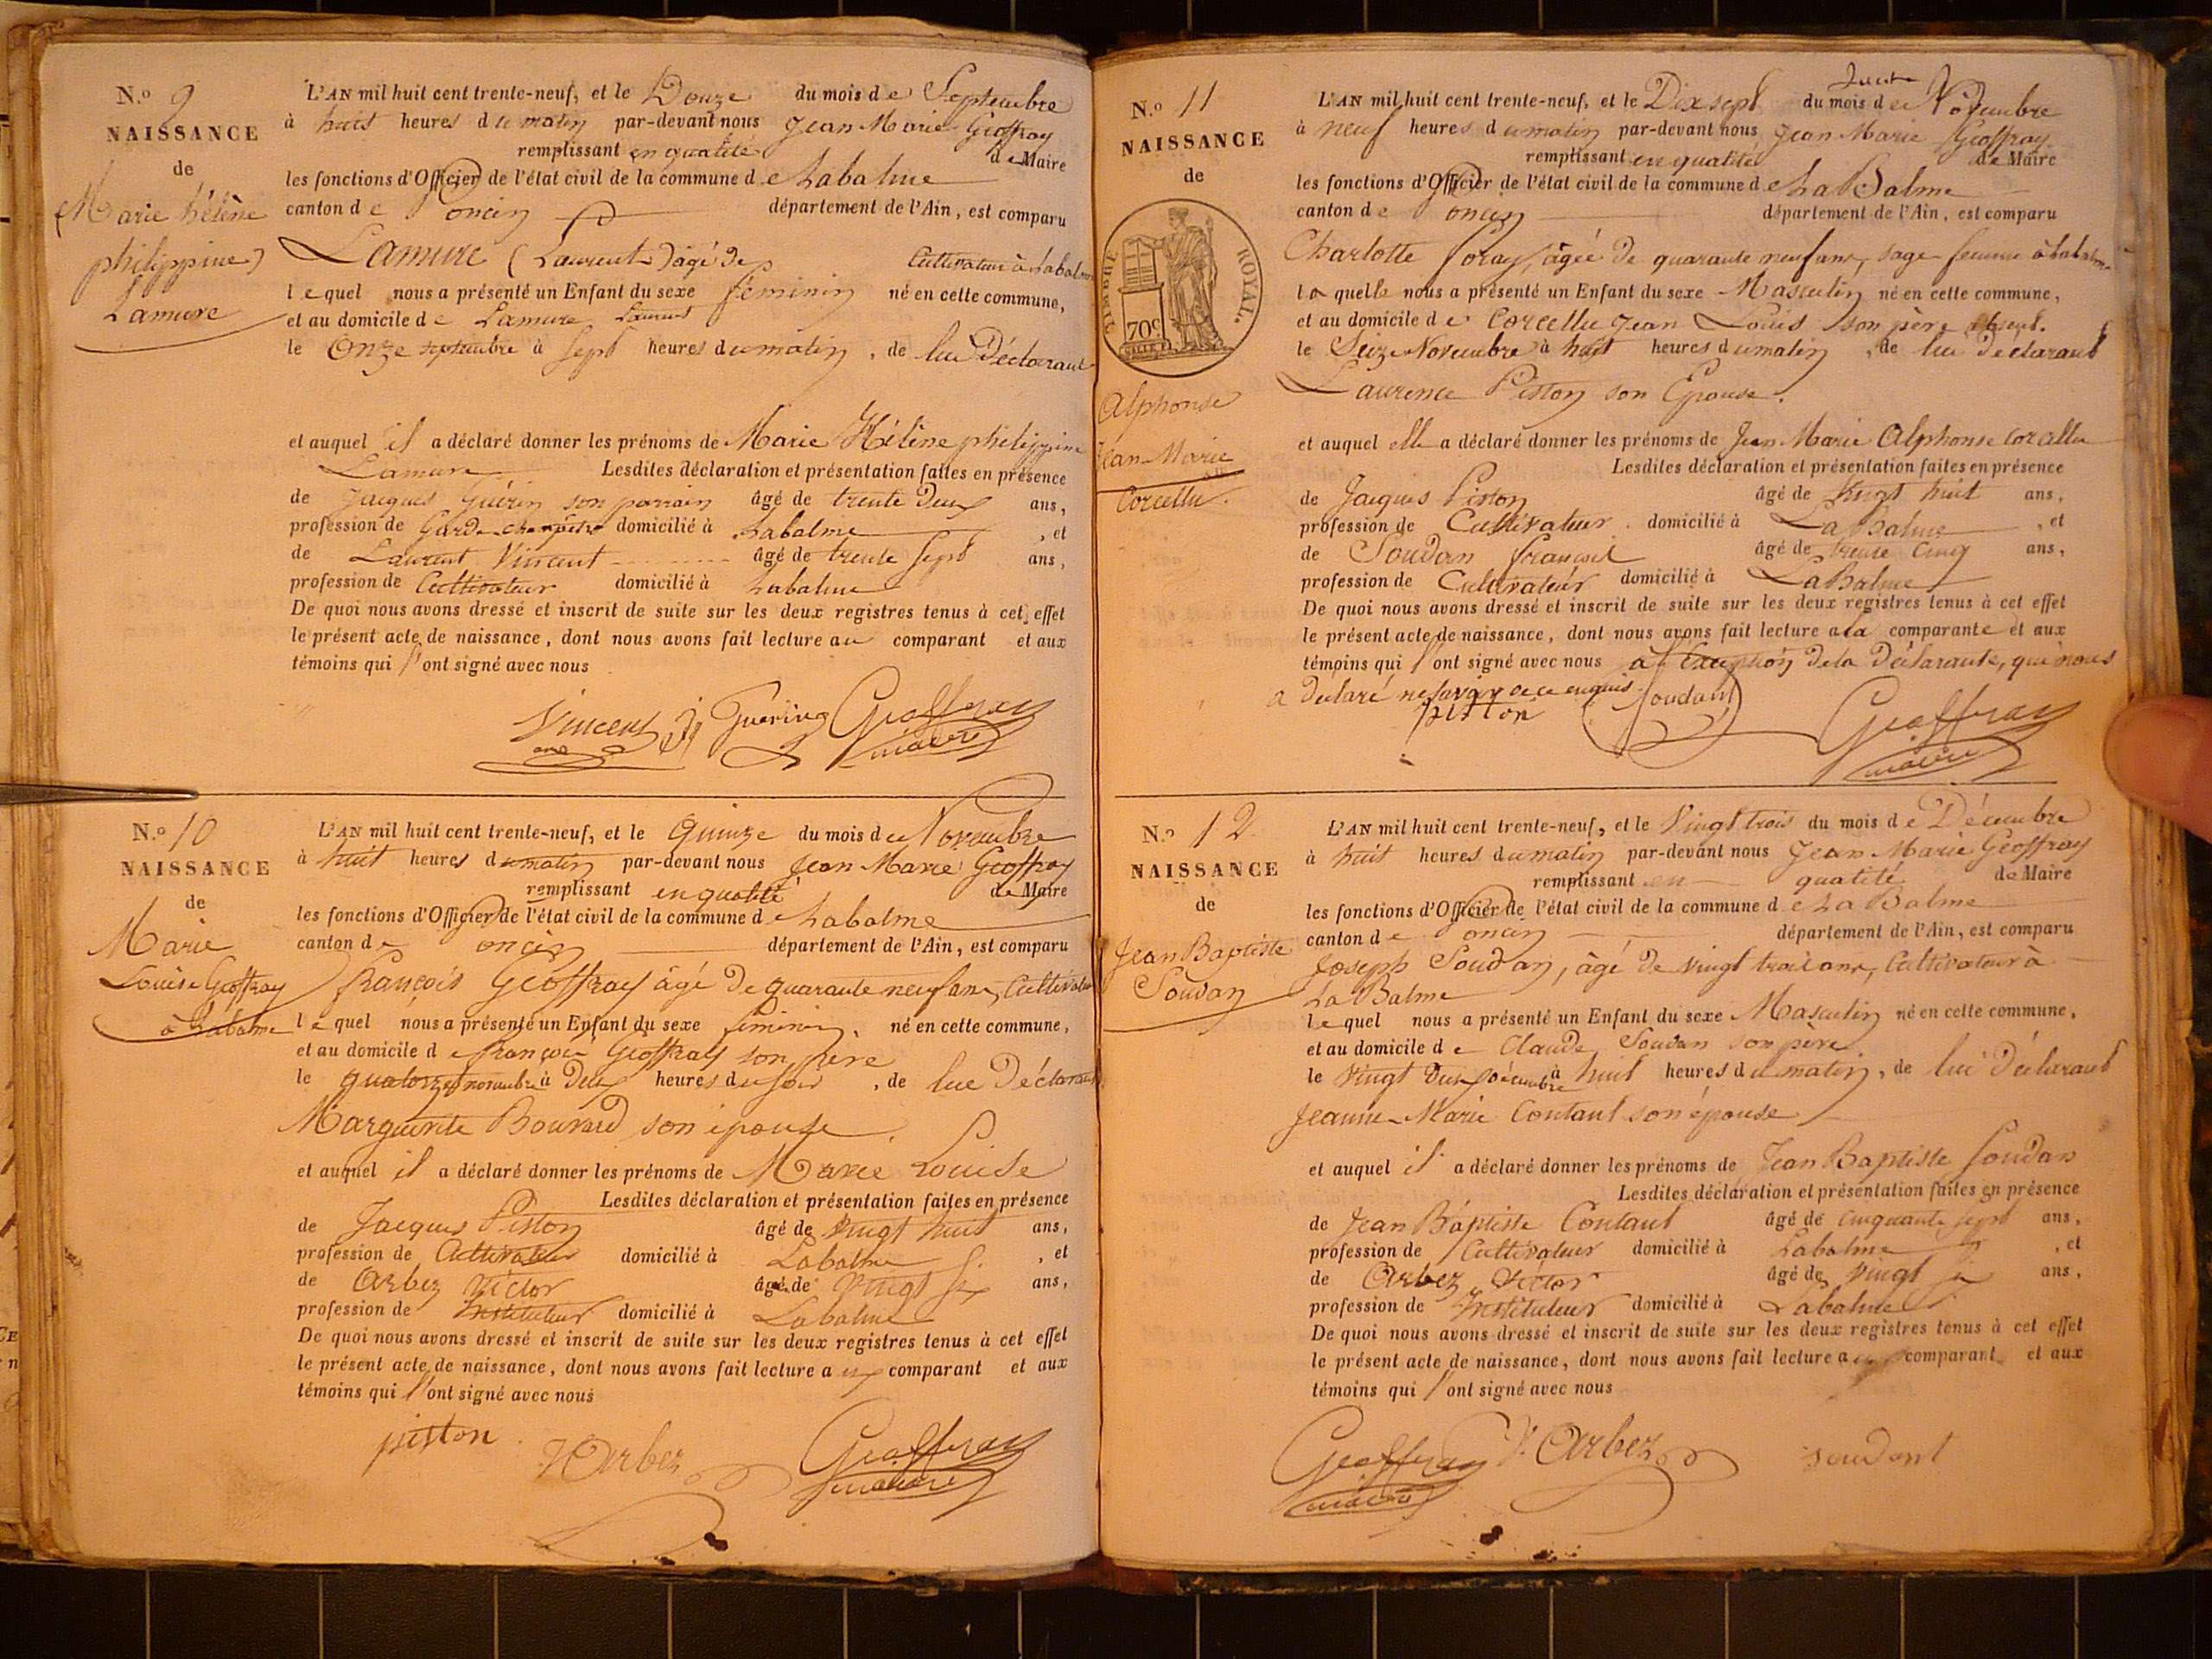 N.º 9
NAISSANCE
de
Marie hélène
philippine
Lamure
L'AN mil huit cent trente-neuf, et le Douze du mois de Septembre
à huit heures du matin par-devant nous Jean Marie Geoffray
remplissant en qualité de Maire
les fonctions d'Officier de l'état civil de la commune de Labalme
canton de Poncin département de l'Ain, est comparu
Lamure (Laurent) âgé de Cultivateur à Labalme
lequel nous a présenté un Enfant du sexe féminin né en cette commune,
et au domicile de Lamure Laurent
le Onze septembre à sept heures du matin, de lui Déclarant
et auquel il a déclaré donner les prénoms de Marie Hélène philippine
Lamure Lesdites déclaration et présentation faites en présence
de Jacques Guérin son parrain âgé de trente Deux ans,
profession de Garde champêtre domicilié à Labalme, et
de Laurent Vincent âgé de trente sept ans,
profession de Cultivateur domicilié à Labalme
De quoi nous avons dressé et inscrit de suite sur les deux registres tenus à cet effet
le présent acte de naissance, dont nous avons fait lecture au comparant et aux
témoins qui l'ont signé avec nous
Vincent Guering Geoffray
maire
N.º 10
NAISSANCE
de
Marie
Louise Geoffray
à Labalme
L'AN mil huit cent trente-neuf, et le Quinze du mois de Novembre
à huit heures du matin par-devant nous Jean Marie Geoffray
remplissant en qualité de Maire
les fonctions d'Officier de l'état civil de la commune de Labalme
canton de Poncin département de l'Ain, est comparu
François Geoffray âgé de quarante neuf ans, Cultivateur
lequel nous a présenté un Enfant du sexe féminin, né en cette commune,
et au domicile de françois Geoffray son père
le quatorze novembre à Deux heures du soir, de lui Déclarant
Marguerite Bouvard son épouse
et auquel il a déclaré donner les prénoms de Marie Louise
Lesdites déclaration et présentation faites en présence
de Jacques Piston âgé de vingt huit ans,
profession de Cultivateur domicilié à Labalme, et
de Arbez Victor âgé de vingt six ans,
profession de Instituteur domicilié à Labalme
De quoi nous avons dressé et inscrit de suite sur les deux registres tenus à cet effet
le présent acte de naissance, dont nous avons fait lecture aux comparant et aux
témoins qui l'ont signé avec nous
piston V. Arbez Geoffray
maire
N.º 11
NAISSANCE
de
TIMBRE ROYAL.
70c
Alphonse
Jean-Marie
Corcellu
L'AN mil huit cent trente-neuf, et le Dix sept du mois de Novembre
à neuf heures du matin par-devant nous Jean Marie Geoffray
remplissant en qualité de Maire
les fonctions d'Officier de l'état civil de la commune de La Balme
canton de Poncin département de l'Ain, est comparu
Charlotte foray, âgée de quarante neuf ans, sage femme à Labalme
laquelle nous a présenté un Enfant du sexe Masculin né en cette commune,
et au domicile de Corcellu Jean Louis son père absent.
le Seize Novembre à huit heures du matin, de lui déclarant
Laurence Piston son Epouse.
et auquel elle a déclaré donner les prénoms de Jean Marie Alphonse Corcellu
Lesdites déclaration et présentation faites en présence
de Jacques Piston âgé de Vingt huit ans,
profession de Cultivateur domicilié à La Balme, et
de Soudan françois âgé de trente cinq ans,
profession de Cultivateur domicilié à La Balme
De quoi nous avons dressé et inscrit de suite sur les deux registres tenus à cet effet
le présent acte de naissance, dont nous avons fait lecture a la comparante et aux
témoins qui l'ont signé avec nous à l'exception de la Déclarante, qui nous
a déclaré ne savoir de ce enquis.
piston Soudan Geoffray
maire
N.º 12
NAISSANCE
de
Jean Baptiste
Soudan
L'AN mil huit cent trente-neuf, et le Vingt trois du mois de Décembre
à huit heures du matin par-devant nous Jean Marie Geoffray
remplissant en qualité de Maire
les fonctions d'Officier de l'état civil de la commune de La Balme
canton de Poncin département de l'Ain, est comparu
Joseph Soudan, âgé de vingt trois ans, Cultivateur à
La Balme
lequel nous a présenté un Enfant du sexe Masculin né en cette commune,
et au domicile de Claude Soudan son père
le vingt Deux Décembre à huit heures du matin, de lui Déclarant
Jeanne-Marie Contant son épouse
et auquel il a déclaré donner les prénoms de Jean Baptiste Soudan
Lesdites déclaration et présentation faites en présence
de Jean Baptiste Contant âgé de cinquante sept ans,
profession de Cultivateur domicilié à Labalme, et
de Arbez Victor âgé de vingt six ans,
profession de Instituteur domicilié à Labalme
De quoi nous avons dressé et inscrit de suite sur les deux registres tenus à cet effet
le présent acte de naissance, dont nous avons fait lecture au comparant et aux
témoins qui l'ont signé avec nous
Geoffray V. Arbez soudant
maire